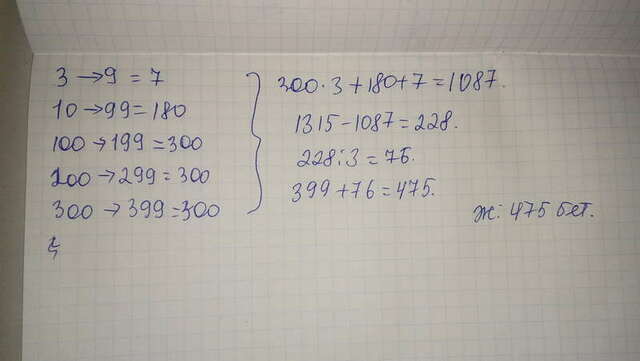 3 → 9 = 7
10 → 99 = 180
100 → 199 = 300
200 → 299 = 300
300 → 399 = 300
4
300·3+180+7=1087.
1315-1087=228.
228:3=76.
399+76=475.
Ж: 475 бет.